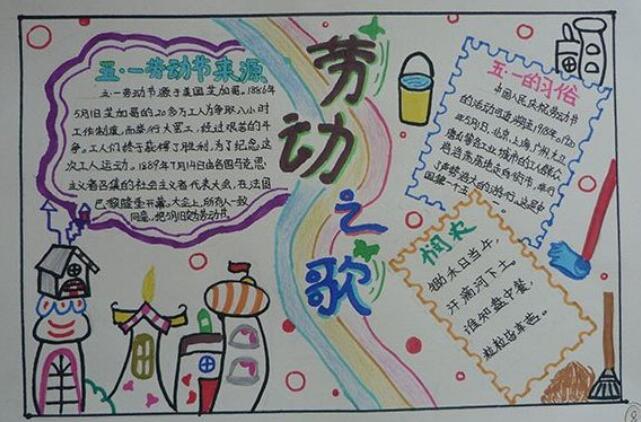 五·一劳动节来源
五·一劳动节源于美国芝加哥,1886年
5月1日芝加哥的20多万工人为争取八小时
工作制度,而举行大罢工,经过艰苦的斗
争。工人们终于获得了胜利,为了纪念这
次工人运动。1889年7月14日由各国马克思
主义者召集的社会主义者代表大会,在法国
巴黎隆重开幕。大会上,所有人一致
同意,把5月1日定为劳动节。
劳动之歌
五·一的习俗
中国人民庆祝劳动节
的活动可追溯至1918年。1920
年5月1日,北京,上海,广州,九江
唐山等各工业城市的工人群众
浩浩荡荡走向街市,举行
了声势浩大的游行。这是中
国第一个五一
悯农
锄禾日当午,
汗滴河下土。
谁知盘中餐,
粒粒皆辛苦。
8